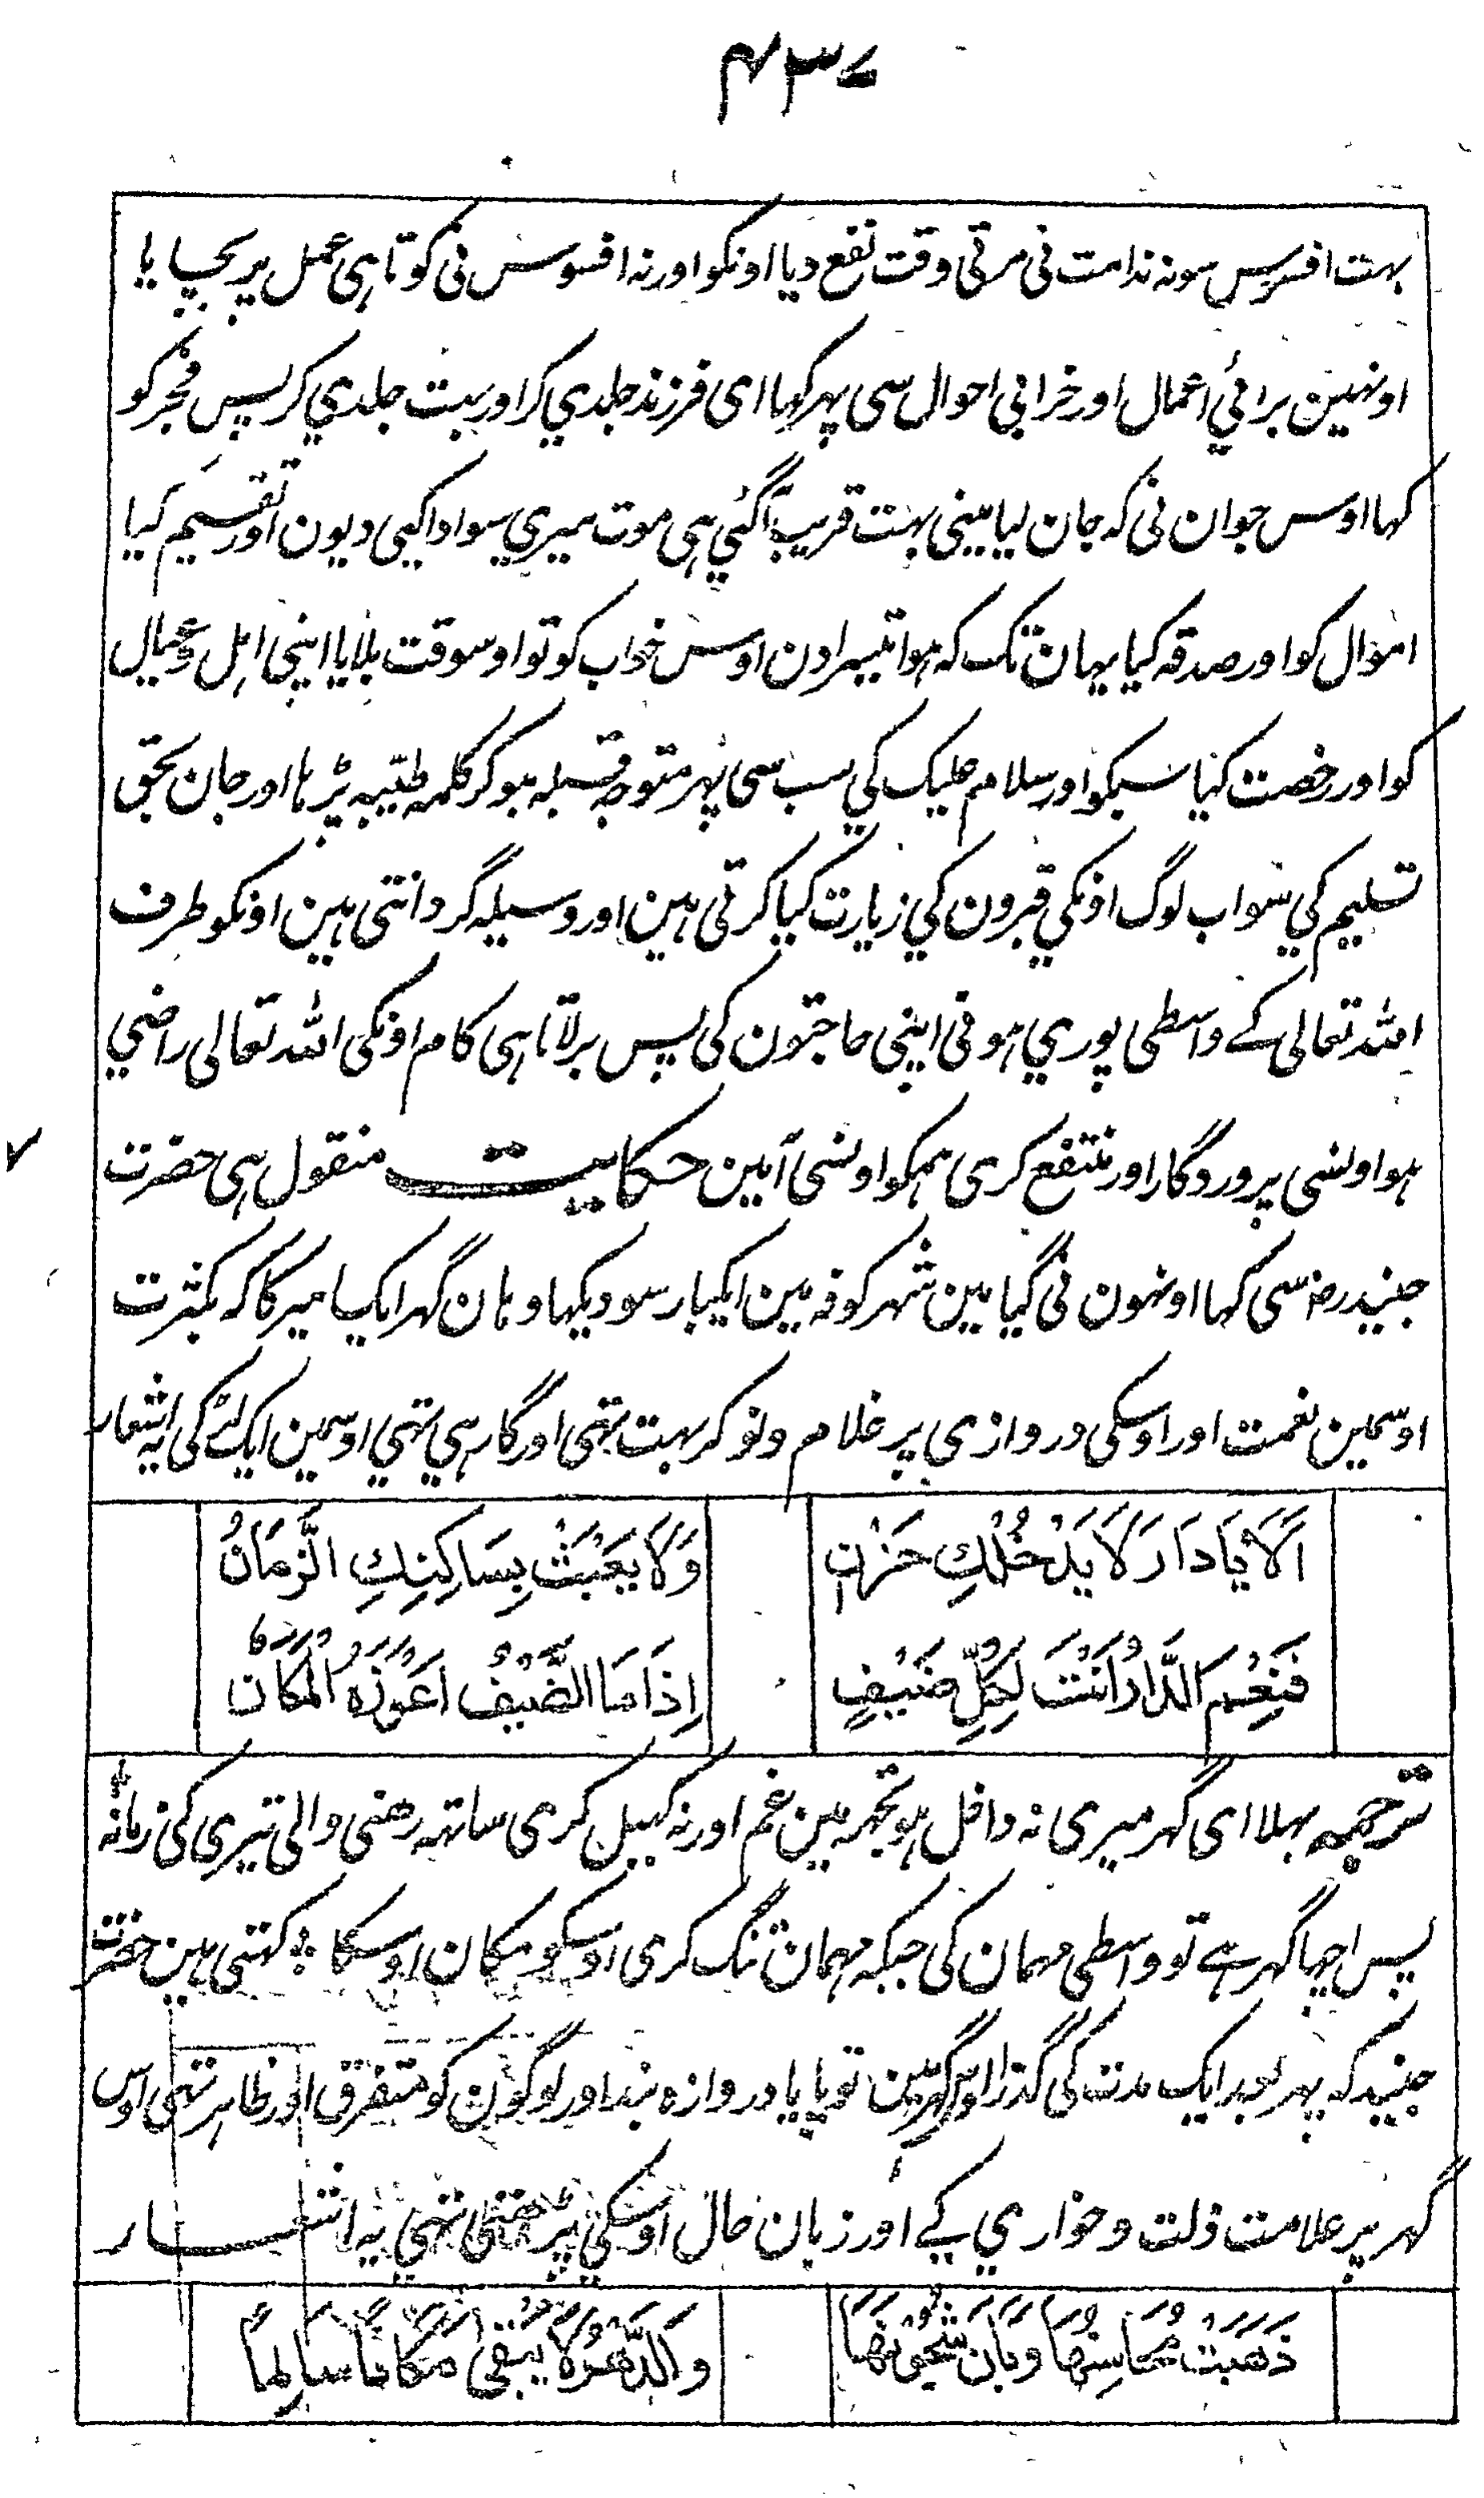 ۴۳۷
بہت افسوس سو نہ ندامت نی مرتی وقت نفع دیا اونکو اور نہ افسوس نی کوتاہی عمل پر بچایا
اونہین برائي اعمال اور خرابی احوال سی پہر کہا ای فرزند جلدي کر اور بہت جلدي کر پس فجر کو
کہا اوس جوان نی کہ جان لیا مینی بہت قریب آگئي ہی موت میري سو ادا کیی دیون اور تقسیم کیا
اموال کو اور صدقہ کیا یہان تک کہ ہوا تیسرا دن اوس خواب کو تو اوسوقت بلایا اپنی اہل و عیال
کو اور رخصت کیا سبکو اور سلام علیک کي سب سی پہر متوجہ قبلہ ہوکر کلمہ طیّبہ پڑہا اور جان بحق
تسلیم کي سو اب لوگ اونکي قبرون کي زیارت کیا کرتی ہین اور وسیلہ گردانتی ہین اونکو طرف
اللہ تعالی کے واسطی پوري ہونی اپنی حاجتون کی پس برلاتا ہی کام اونکی اللہ تعالی راضي
ہو اونسی پروردگار اور منتفع کری ہمکو اونسی آمین حکایت منقول ہی حضرت
جنید رضہ سی کہا اونہون نی گیا مین شہر کوفہ مین ایکبار سو دیکہا وہان گہر ایک امیر کا کہ بکثرت
اوسمین نعمت اور اوسکی دروازي پر غلام و نوکر بہت تہی اور گارہي تہي اوسمین ایک لڑکی یہ اشعار
اَلَا یَا دَارُ لَا یَدْخُلْكِ حُزْنٌ وَلَا یَعْبَثْ بِسَاكِنِكِ الزَّمَانُ
فَنِعْمَ الدَّارُ اَنْتَ لِكُلِّ ضَیْفٍ اِذَا مَا الضَّیْفُ اَعْوَزَهُ الْمَكَانُ
ترجمہ بہلا ای گہر میری نہ داخل ہو تجہ مین غم اور نہ کہیل کری ساتہہ رہنی والی تیری کی زمانہ
پس اچہا گہر ہے تو واسطی مہمان کی جبکہ مہمان تنگ کری اوسکو مکان اوسکا ؛ کہتی ہین حضرت
جنید کہ پہر بعد ایک مدت کی گذرا اوس گہر مین تو پایا دروازہ بند اور لوگون کو متفرق اور ظاہر تہی اوس
گہر پر علامت ذلت و خواري کے اور زبان حال اوسکي پڑہتی تہي یہ اشعار
ذَهَبَتْ مَحَاسِنُهَا وَبَانَ شُجُوْنُهَا وَالدَّهْرُ لَا یُبْقِیْ مَكَانًا سَالِمًا